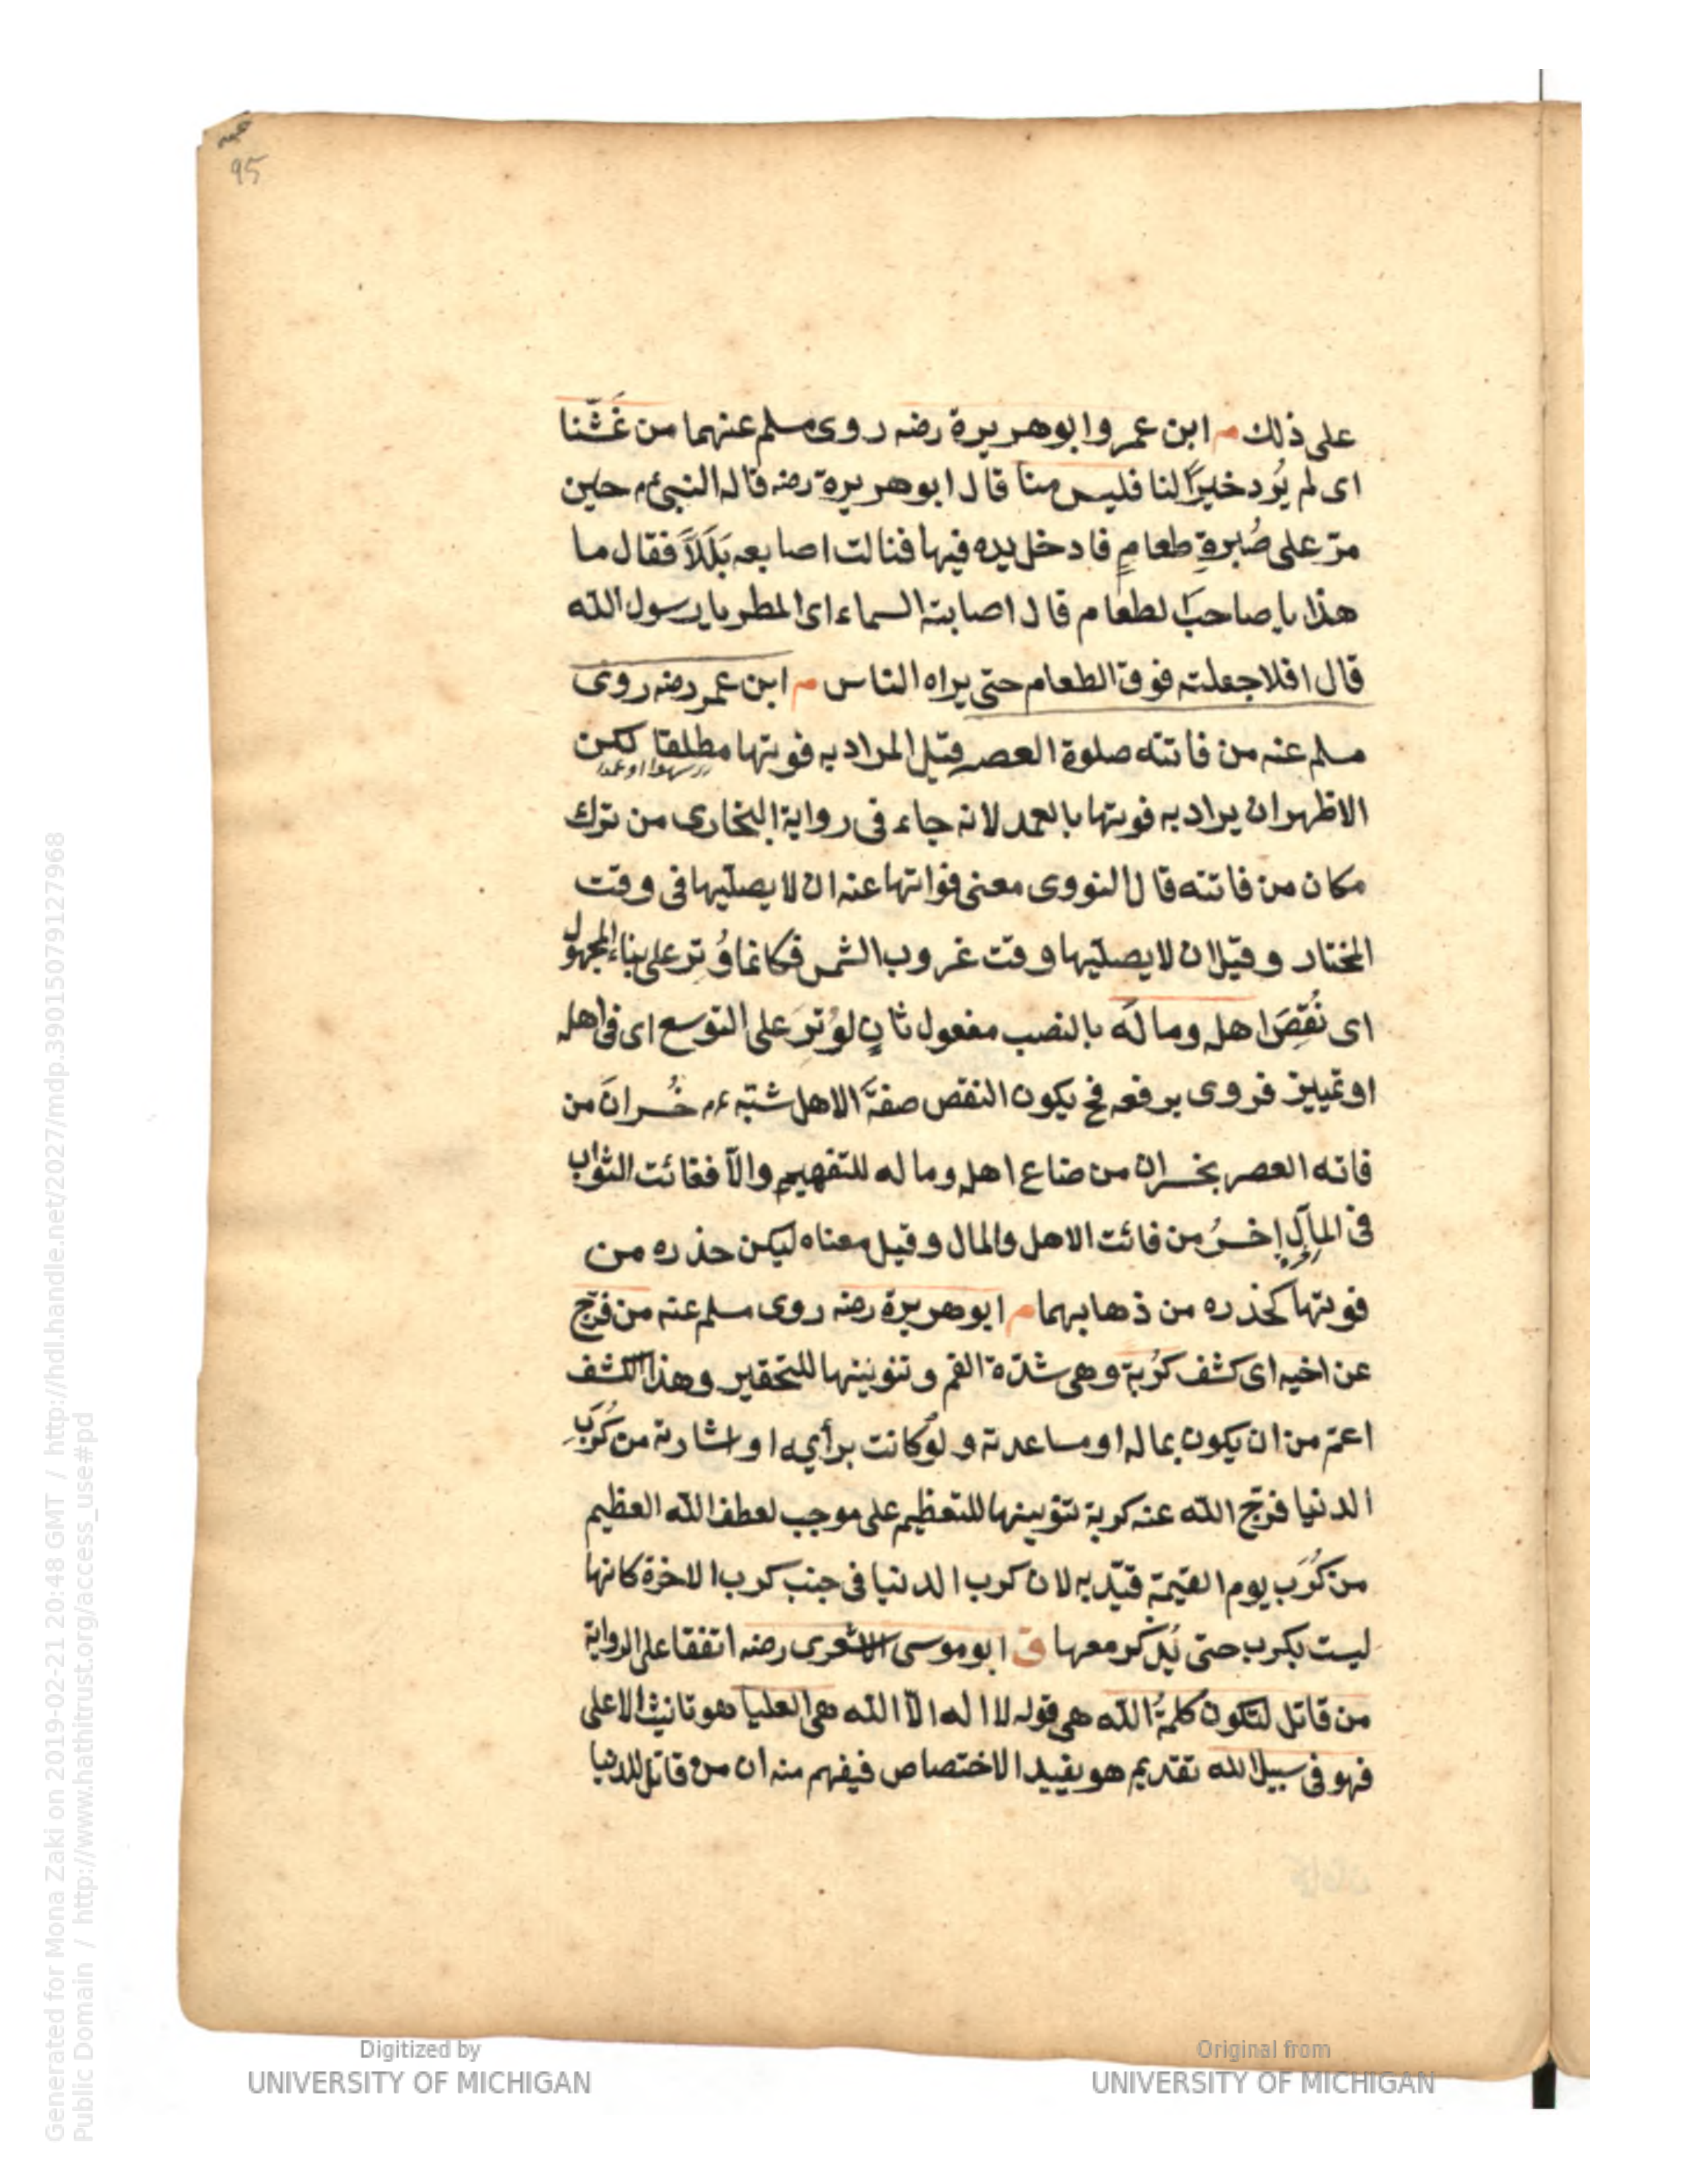 95
على ذلك م ابن عمر وابو هريرة رضه روى مسلم عنهما من غَشَّنا
اى لم يُرد خيرًا لنا فليس منا قال ابو هريرة رضه قاله النبىء م حين
مرّ على صُبرةِ طعامٍ فادخل يده فيها فنالت اصابعه بَلَلاً فقال ما
هذا يا صاحبَ الطعام قال اصابته السماء اى المطر يا رسول الله
قال افلا جعلته فوق الطعام حتى يراه الناس م ابن عمر رضه روى
مسلم عنه من فاتته صلوة العصر قيل المراد به فوتها مطلقا لكن
سهوا او عمدا
الاظهر ان يراد به فوتها بالعمد لانه جاء فى رواية البخارى من ترك
مكان من فاتته قال النووى معنى فواتها عنه ان لا يصلّيها فى وقت
المختار وقيل ان لا يصلّيها وقت غروب الشمس فكانما وُتر على بناء المجهول
اى نُقِصَ اهله وماله بالنصب مفعول ثانٍ لوُترَ على التوسع اى فى اهله
او تمييز فروى برفعه فح يكون النقص صفةً الاهل شبّه ءم خُسرانَ من
فاته العصر بخسران من ضاع اهله وماله للتفهيم والاّ ففائت الثواب
فى المآلِ اخسرُ من فائت الاهل والمال وقيل معناه ليكن حذره من
فوتها كحذره من ذهابهما م ابو هريرة رضه روى مسلم عنه من فرّج
عن اخيه اى كشف كُربة وهى شدّة الغم وتنوينها للتحقير وهذا الكشف
اعمّ من ان يكون بماله او مساعدته ولو كانت برأيه او اشارته من كُرَبِ
الدنيا فرّج الله عنه كربة تنوينها للتعظيم على موجب لعطف الله العظيم
من كُرَب يوم القيمة قيّد به لان كرب الدنيا فى جنب كرب الاخرة كانها
ليست بكرب حتى يُذكر معها ق ابو موسى الاشعرى رضه اتفقا على الرواية
من قاتل لتكون كلمةُ الله هى قوله لا اله الاّ الله هى العليا هو تانيث الاعلى
فهو فى سبيل الله تقديم هو يفيد الاختصاص فيفهم منه ان من قاتل للدنيا
Digitized by
UNIVERSITY OF MICHIGAN
Original from
UNIVERSITY OF MICHIGAN
Generated for Mona Zaki on 2019-02-21 20:48 GMT / http://hdl.handle.net/2027/mdp.39015079127968
Public Domain / http://www.hathitrust.org/access_use#pd